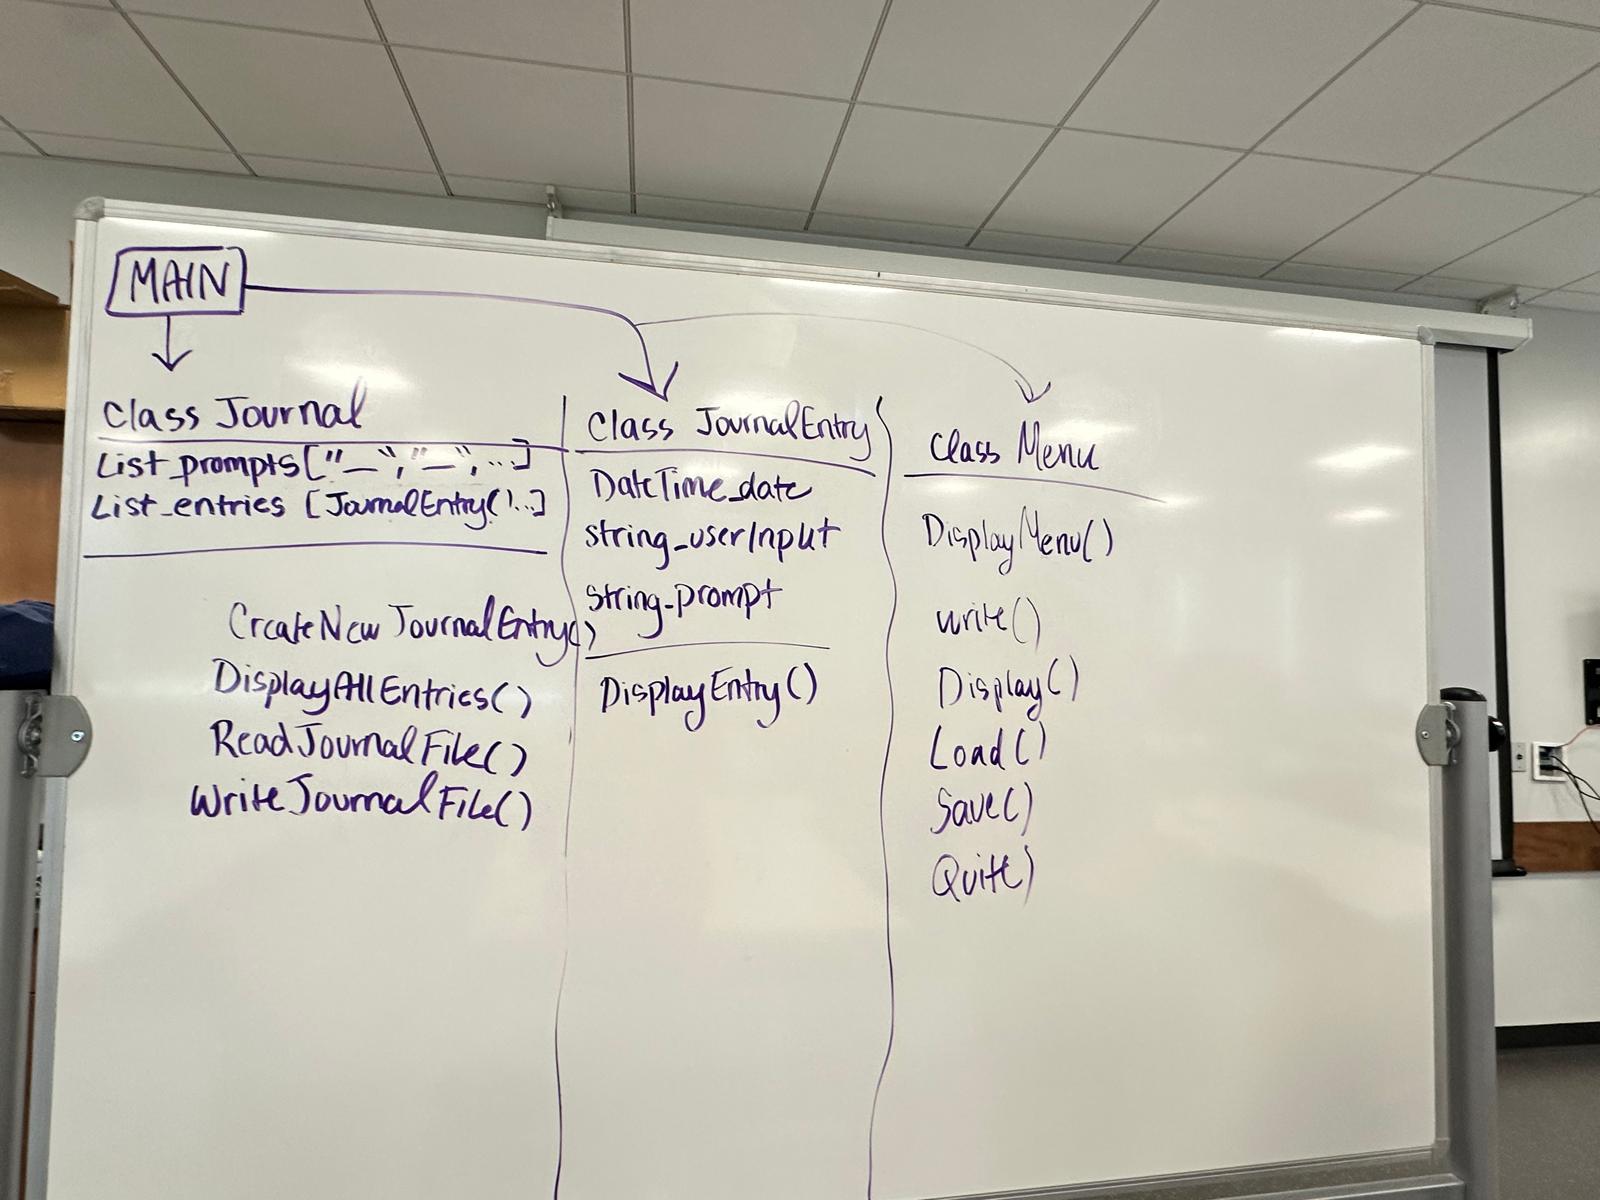 MAIN
Class Journal
List_prompts["_","_",...]
List_entries [JournalEntry()...]
CreateNewJournalEntry()
DisplayAllEntries()
ReadJournalFile()
WriteJournalFile()
Class JournalEntry
DateTime_date
string_userInput
string_prompt
DisplayEntry()
Class Menu
DisplayMenu()
write()
Display()
Load()
Save()
Quit()